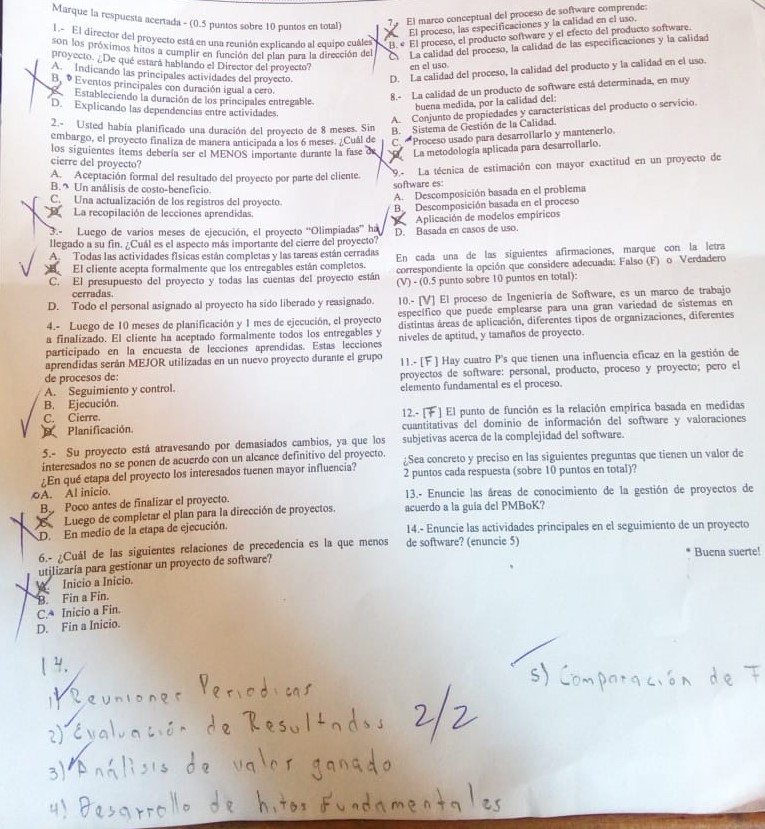 Marque la respuesta acertada - (0.5 puntos sobre 10 puntos en total)
1.- El director del proyecto está en una reunión explicando al equipo cuáles
son los próximos hitos a cumplir en función del plan para la dirección del
proyecto. ¿De qué estará hablando el Director del proyecto?
A. Indicando las principales actividades del proyecto.
B. Eventos principales con duración igual a cero.
C. Estableciendo la duración de los principales entregable.
D. Explicando las dependencias entre actividades.
2.- Usted había planificado una duración del proyecto de 8 meses. Sin
embargo, el proyecto finaliza de manera anticipada a los 6 meses. ¿Cuál de
los siguientes ítems debería ser el MENOS importante durante la fase de
cierre del proyecto?
A. Aceptación formal del resultado del proyecto por parte del cliente.
B. Un análisis de costo-beneficio.
C. Una actualización de los registros del proyecto.
D. La recopilación de lecciones aprendidas.
3.- Luego de varios meses de ejecución, el proyecto "Olimpiadas" ha
llegado a su fin. ¿Cuál es el aspecto más importante del cierre del proyecto?
A. Todas las actividades físicas están completas y las tareas están cerradas
B. El cliente acepta formalmente que los entregables están completos.
C. El presupuesto del proyecto y todas las cuentas del proyecto están
cerradas.
D. Todo el personal asignado al proyecto ha sido liberado y reasignado.
4.- Luego de 10 meses de planificación y 1 mes de ejecución, el proyecto
a finalizado. El cliente ha aceptado formalmente todos los entregables y
participado en la encuesta de lecciones aprendidas. Estas lecciones
aprendidas serán MEJOR utilizadas en un nuevo proyecto durante el grupo
de procesos de:
A. Seguimiento y control.
B. Ejecución.
C. Cierre.
D. Planificación.
5.- Su proyecto está atravesando por demasiados cambios, ya que los
interesados no se ponen de acuerdo con un alcance definitivo del proyecto.
¿En qué etapa del proyecto los interesados tuenen mayor influencia?
A. Al inicio.
B. Poco antes de finalizar el proyecto.
C. Luego de completar el plan para la dirección de proyectos.
D. En medio de la etapa de ejecución.
6.- ¿Cuál de las siguientes relaciones de precedencia es la que menos
utilizaría para gestionar un proyecto de software?
A. Inicio a Inicio.
B. Fin a Fin.
C. Inicio a Fin.
D. Fin a Inicio.
7.- El marco conceptual del proceso de software comprende:
A. El proceso, las especificaciones y la calidad en el uso.
B. El proceso, el producto software y el efecto del producto software.
C. La calidad del proceso, la calidad de las especificaciones y la calidad
en el uso.
D. La calidad del proceso, la calidad del producto y la calidad en el uso.
8.- La calidad de un producto de software está determinada, en muy
buena medida, por la calidad del:
A. Conjunto de propiedades y características del producto o servicio.
B. Sistema de Gestión de la Calidad.
C. Proceso usado para desarrollarlo y mantenerlo.
D. La metodología aplicada para desarrollarlo.
9.- La técnica de estimación con mayor exactitud en un proyecto de
software es:
A. Descomposición basada en el problema
B. Descomposición basada en el proceso
C. Aplicación de modelos empíricos
D. Basada en casos de uso.
En cada una de las siguientes afirmaciones, marque con la letra
correspondiente la opción que considere adecuada: Falso (F) o Verdadero
(V) - (0.5 punto sobre 10 puntos en total):
10.- [V] El proceso de Ingeniería de Software, es un marco de trabajo
específico que puede emplearse para una gran variedad de sistemas en
distintas áreas de aplicación, diferentes tipos de organizaciones, diferentes
niveles de aptitud, y tamaños de proyecto.
11.- [F] Hay cuatro P's que tienen una influencia eficaz en la gestión de
proyectos de software: personal, producto, proceso y proyecto; pero el
elemento fundamental es el proceso.
12.- [F] El punto de función es la relación empírica basada en medidas
cuantitativas del dominio de información del software y valoraciones
subjetivas acerca de la complejidad del software.
¿Sea concreto y preciso en las siguientes preguntas que tienen un valor de
2 puntos cada respuesta (sobre 10 puntos en total)?
13.- Enuncie las áreas de conocimiento de la gestión de proyectos de
acuerdo a la guía del PMBoK?
14.- Enuncie las actividades principales en el seguimiento de un proyecto
de software? (enuncie 5)
* Buena suerte!
14.
1) Reuniones Periodicas
2) Evaluación de Resultados 2/2
3) Análisis de valor ganado
4) Desarrollo de hitos Fundamentales
5) Comparación de F